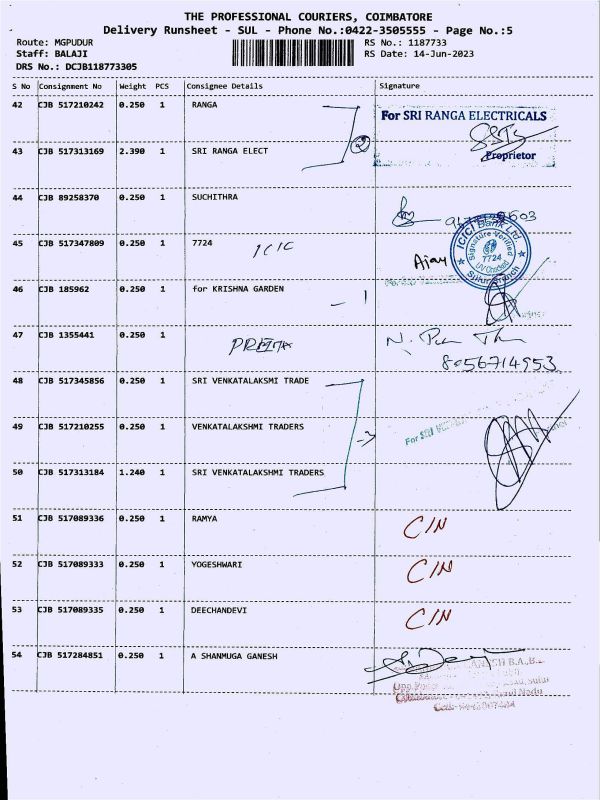 THE PROFESSIONAL COURIERS, COIMBATORE
Delivery Runsheet - SUL - Phone No.:0422-3505555 - Page No.:5
Route: MGPUDUR RS No.: 1187733
Staff: BALAJI RS Date: 14-Jun-2023
DRS No.: DCJB118773305
S No Consignment No Weight PCS Consignee Details Signature
42 CJB 517210242 0.250 1 RANGA
For SRI RANGA ELECTRICALS
2
Proprietor
43 CJB 517313169 2.390 1 SRI RANGA ELECT
44 CJB 89258370 0.250 1 SUCHITHRA
45 CJB 517347809 0.250 1 7724 ICIC
Ajay
ICICI Bank Ltd
Signature Verified
7724
Sulur Branch
46 CJB 185962 0.250 1 for KRISHNA GARDEN - 1
47 CJB 1355441 0.250 1
8056714953
48 CJB 517345856 0.250 1 SRI VENKATALAKSMI TRADE
49 CJB 517210255 0.250 1 VENKATALAKSHMI TRADERS -3
For SRI
50 CJB 517313184 1.240 1 SRI VENKATALAKSHMI TRADERS
51 CJB 517089336 0.250 1 RAMYA C/N
52 CJB 517089333 0.250 1 YOGESHWARI C/N
53 CJB 517089335 0.250 1 DEECHANDEVI C/N
54 CJB 517284851 0.250 1 A SHANMUGA GANESH